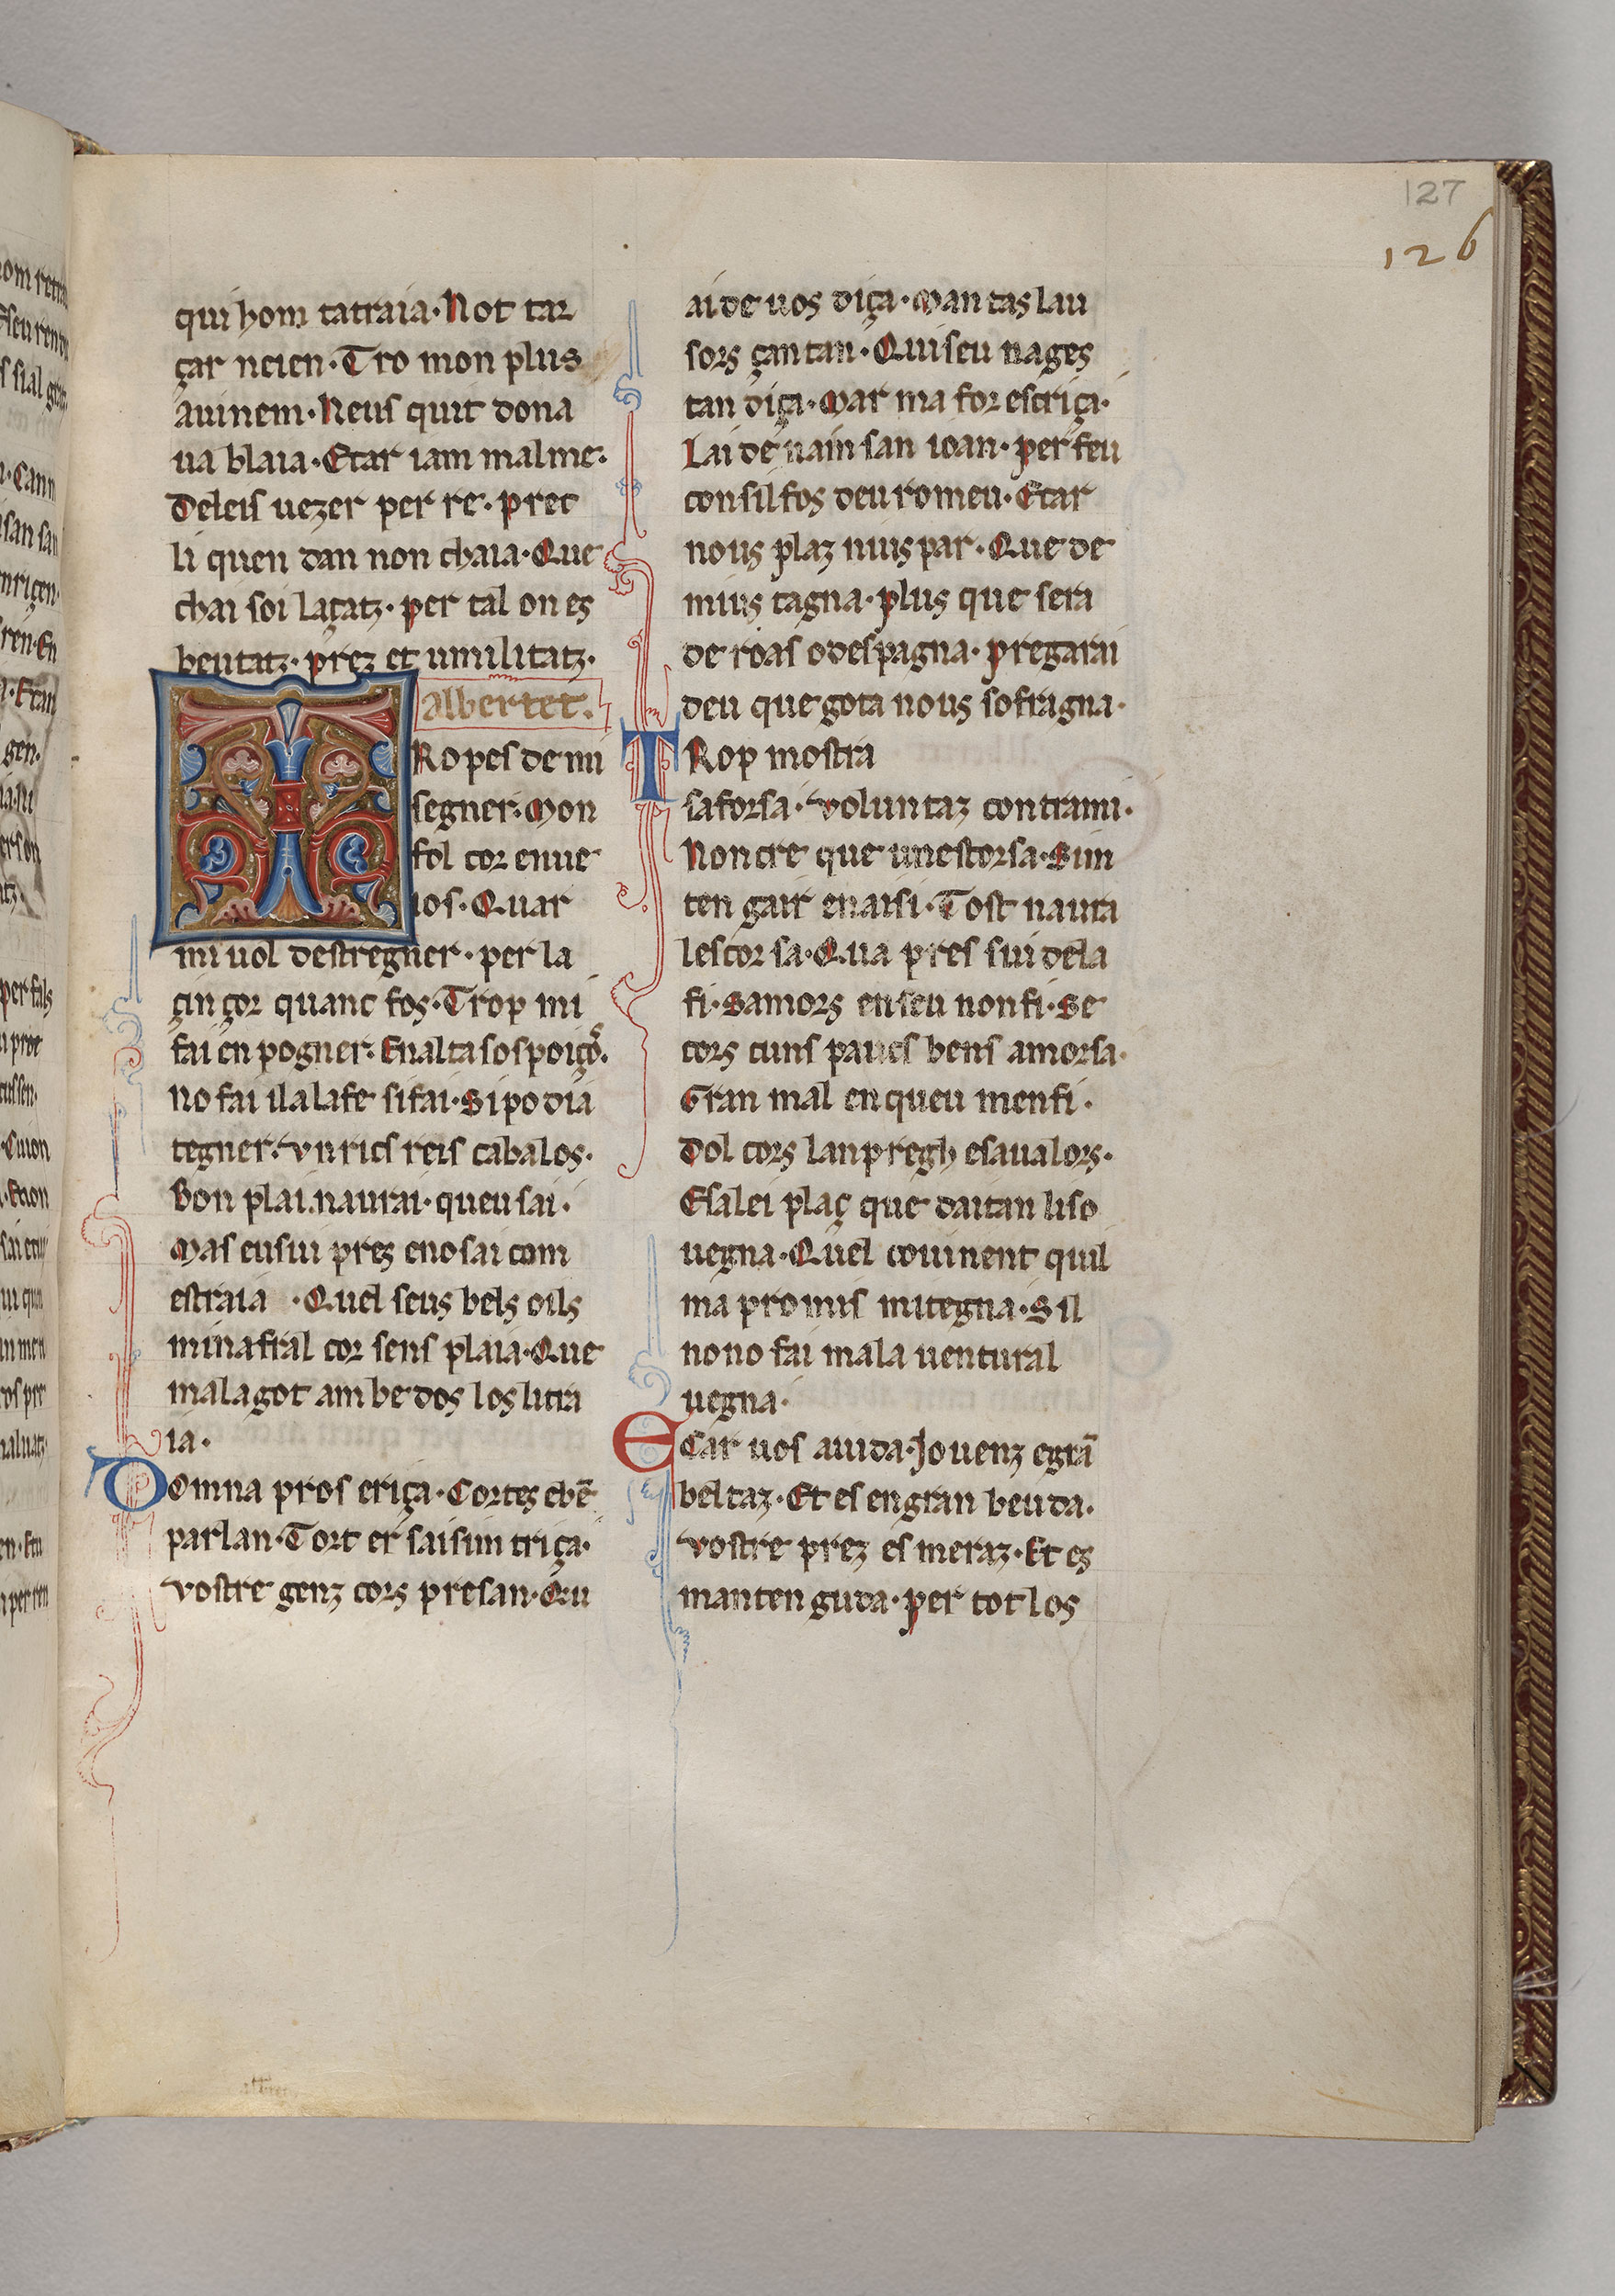 127
126
qui hom tatraia· Not tar
çar neien· Tro mon plus
auinem· Neus quit dona
ua blaia· Etar iam malme·
Deleis uezer per re· pret
li quen dan non chaia· Que
chai soi laçatz· per tal on es
beutatz· prez et umilitatz·
albertet.
TRopes de mi
segner· Mon
fol cor enue
ios· Quar
mi uol destregner· per la
çinçor quanc fos· Trop mi
fai en pogner· En alta sospoiços·
No fai ila la fe si fai· Si podia
tegner· Vn rics reis cabalos·
Bon plai naurai· queu sai·
Mas eu sui prez e no sai com
estraia · Quel seus bels oils
minafral cor sens plaia· Que
mala got ambedos los li tra
ia·
Domna pros eriça· Cortes e bē
parlan· Tort er sai sim triça·
Vostre genz cors presan· Qu
ai de uos diça· Man tas lau
sors çantan· Qui seu nages
tan diça· Mar ma for escriça·
Lai de nain san ioan· per feu
consilfos deu romeu· Etar
nous plaz nius par· Que de
mius tagna· plus que sera
de roais o despagna· pregarai
deu que gota nous sofragna·
TRop mostra
sa forsa· Voluntaz contra mi·
Non cre que un estorsa· Sim
ten gair enaisi· Tost naura
lescorsa· Qua pres sui de la
fi· Samors en seu non fi· Se
cors cuns paucs bens amorsa·
Gran mal en queu men fi·
Dol cors lan pregh e sa ualors·
E sa lei plaç que daitan li so
uegna· Quel couinent quil
ma promis mi tegna· Sil
nono fai mala uentural
uegna·
ECar uos aiuda· Jouenz e grā
beltaz· Et es en gran beuda·
Vostre prez es meraz· Et es
mantenguda· per tot los